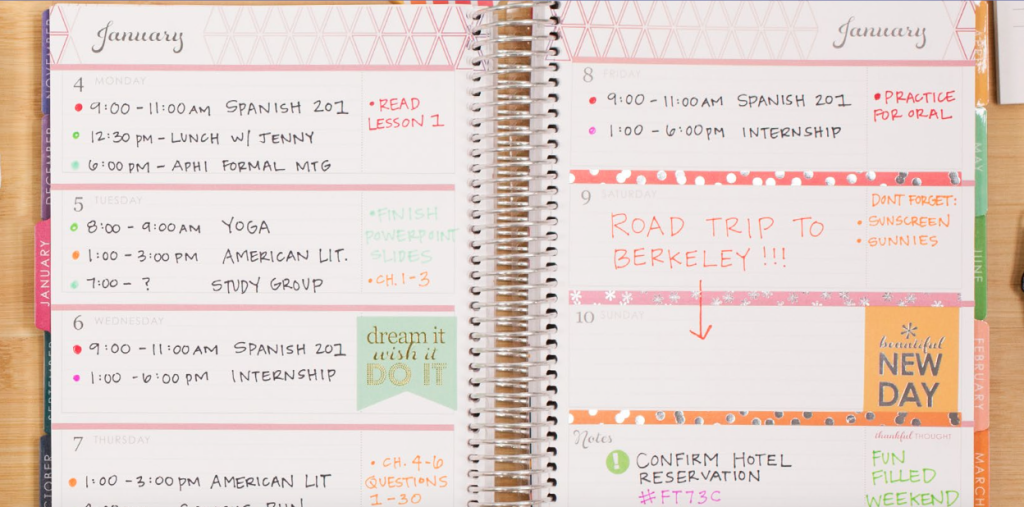 January
4 MONDAY
9:00 - 11:00 AM SPANISH 201
12:30 PM - LUNCH W/ JENNY
6:00 PM - APHI FORMAL MTG
• READ
LESSON 1
5 TUESDAY
8:00 - 9:00 AM YOGA
1:00 - 3:00 PM AMERICAN LIT.
7:00 - ? STUDY GROUP
• FINISH
POWERPOINT
SLIDES
• CH. 1-3
6 WEDNESDAY
9:00 - 11:00 AM SPANISH 201
1:00 - 6:00 PM INTERNSHIP
dream it
wish it
DO IT
7 THURSDAY
1:00 - 3:00 PM AMERICAN LIT
RUN
• CH. 4-6
QUESTIONS
1-30
January
8 FRIDAY
9:00 - 11:00 AM SPANISH 201
1:00 - 6:00 PM INTERNSHIP
• PRACTICE
FOR ORAL
9 SATURDAY
ROAD TRIP TO
BERKELEY !!!
DONT FORGET:
• SUNSCREEN
• SUNNIES
10 SUNDAY
beautiful
NEW
DAY
Notes
! CONFIRM HOTEL
RESERVATION
#FT73C
thankful THOUGHT
FUN
FILLED
WEEKEND
NOVEMBER
DECEMBER
JANUARY
SEPTEMBER
OCTOBER
MAY
JUNE
FEBRUARY
MARCH